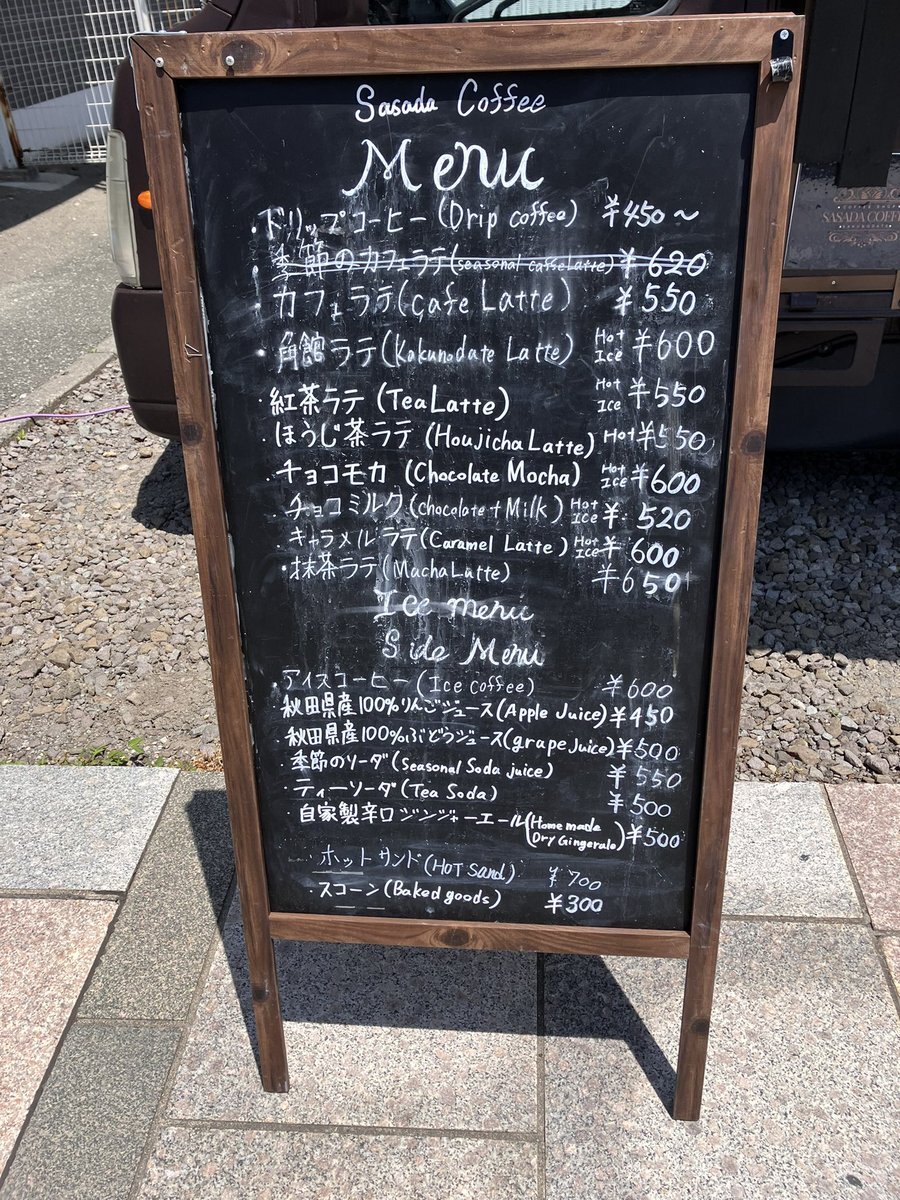 Sasada Coffee
Menu
・ドリップコーヒー(Drip coffee) ¥450〜
季節のカフェラテ(seasonal caffeLatte) ¥620
カフェラテ(Cafe Latte) ¥550
・角館ラテ(Kakunodate Latte) Hot Ice ¥600
・紅茶ラテ(Tea Latte) Hot Ice ¥550
・ほうじ茶ラテ(Houjicha Latte) Hot ¥550
・チョコモカ(Chocolate Mocha) Hot Ice ¥600
・チョコミルク(chocolate + Milk) Hot Ice ¥520
・キャラメルラテ(Caramel Latte) Hot Ice ¥600
・抹茶ラテ(Macha Latte) ¥650
Ice menu
Side Menu
・アイスコーヒー(Ice coffee) ¥600
秋田県産100%りんごジュース(Apple Juice) ¥450
・秋田県産100%ぶどうジュース(grape Juice) ¥500
・季節のソーダ(Seasonal Soda juice) ¥550
・ティーソーダ(Tea Soda) ¥500
・自家製辛口ジンジャーエール(Home made Dry Gingerale) ¥500
・ホットサンド(HOT Sand) ¥700
・スコーン(Baked goods) ¥300
SASADA COFFEE